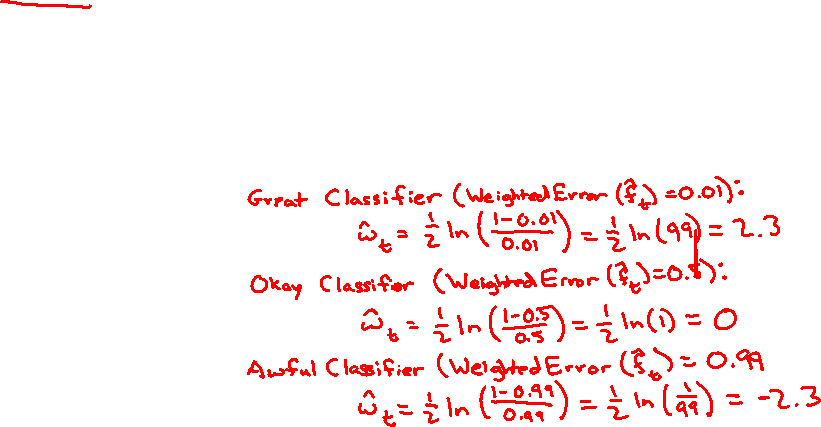 Great Classifier (Weighted Error (f̂_t) = 0.01):
ŵ_t = 1/2 ln(1-0.01/0.01) = 1/2 ln(99) = 2.3
Okay Classifier (Weighted Error (f̂_t) = 0.5):
ŵ_t = 1/2 ln(1-0.5/0.5) = 1/2 ln(1) = 0
Awful Classifier (Weighted Error (f̂_t) = 0.99
ŵ_t = 1/2 ln(1-0.99/0.99) = 1/2 ln(1/99) = -2.3